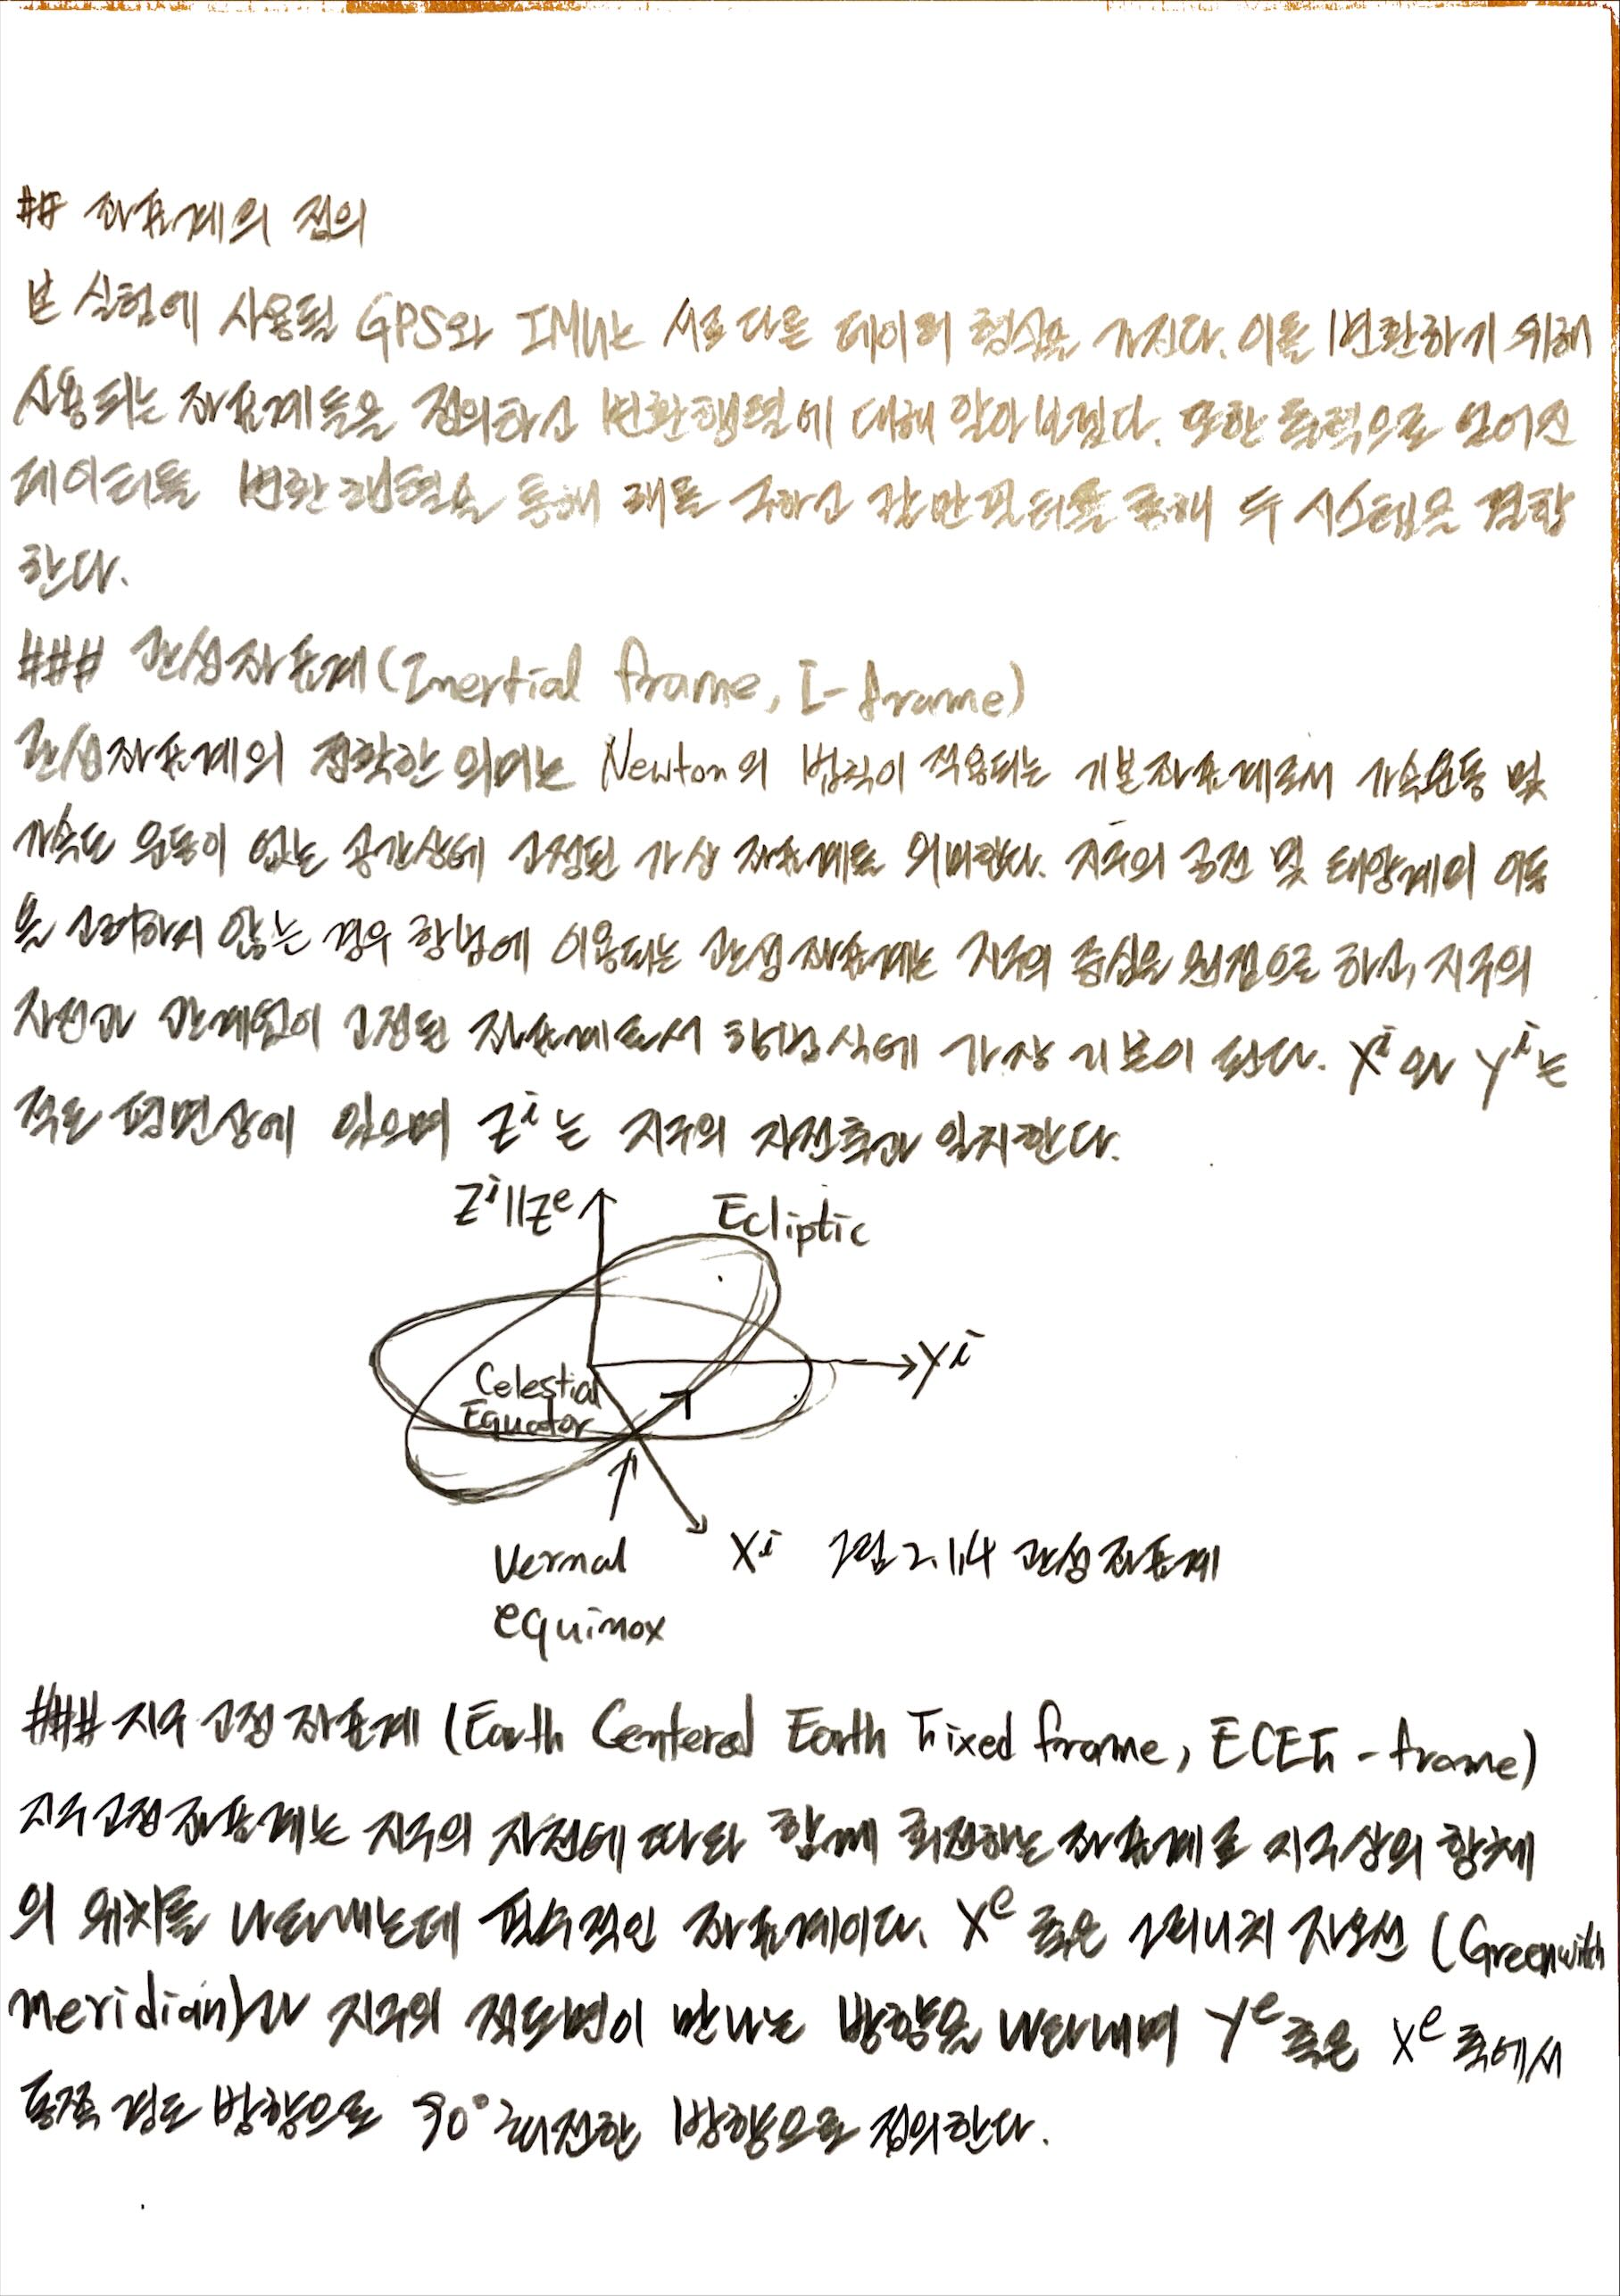 ## 좌표계의 정의
본 실험에 사용될 GPS와 IMU는 서로 다른 데이터 형식을 가진다. 이를 변환하기 위해
사용되는 좌표계들을 정의하고 변환행렬에 대해 알아보겠다. 또한 출력으로 얻어진
데이터를 변환행렬을 통해 해를 구하고 칼만필터를 통해 두 시스템을 결합
한다.
### 관성좌표계(Inertial frame, I-frame)
관성좌표계의 정확한 의미는 Newton의 법칙이 적용되는 기본좌표계로서 가속운동 및
가속도 운동이 없는 공간상에 고정된 가상 좌표계를 의미한다. 지구의 공전 및 태양계의 이동
을 고려하지 않는 경우 항법에 이용되는 관성좌표계는 지구의 중심을 원점으로 하고, 지구의
자전과 관계없이 고정된 좌표계로서 항법식에 가장 기본이 된다. Xⁱ와 Yⁱ는
적도 평면상에 있으며 Zⁱ는 지구의 자전축과 일치한다.
Zⁱ||Zᵉ
Ecliptic
Yⁱ
Celestial
Equator
Vernal
equinox
Xⁱ 그림 2.1.4 관성좌표계
### 지구 고정 좌표계 (Earth Centered Earth Fixed frame, ECEF-frame)
지구고정좌표계는 지구의 자전에 따라 함께 회전하는 좌표계로 지구상의 항체
의 위치를 나타내는데 필수적인 좌표계이다. Xᵉ 축은 그리니치 자오선 (Greenwith
meridian)과 지구의 적도면이 만나는 방향을 나타내며 Yᵉ축은 Xᵉ축에서
동쪽 경도 방향으로 90° 회전한 방향으로 정의한다.